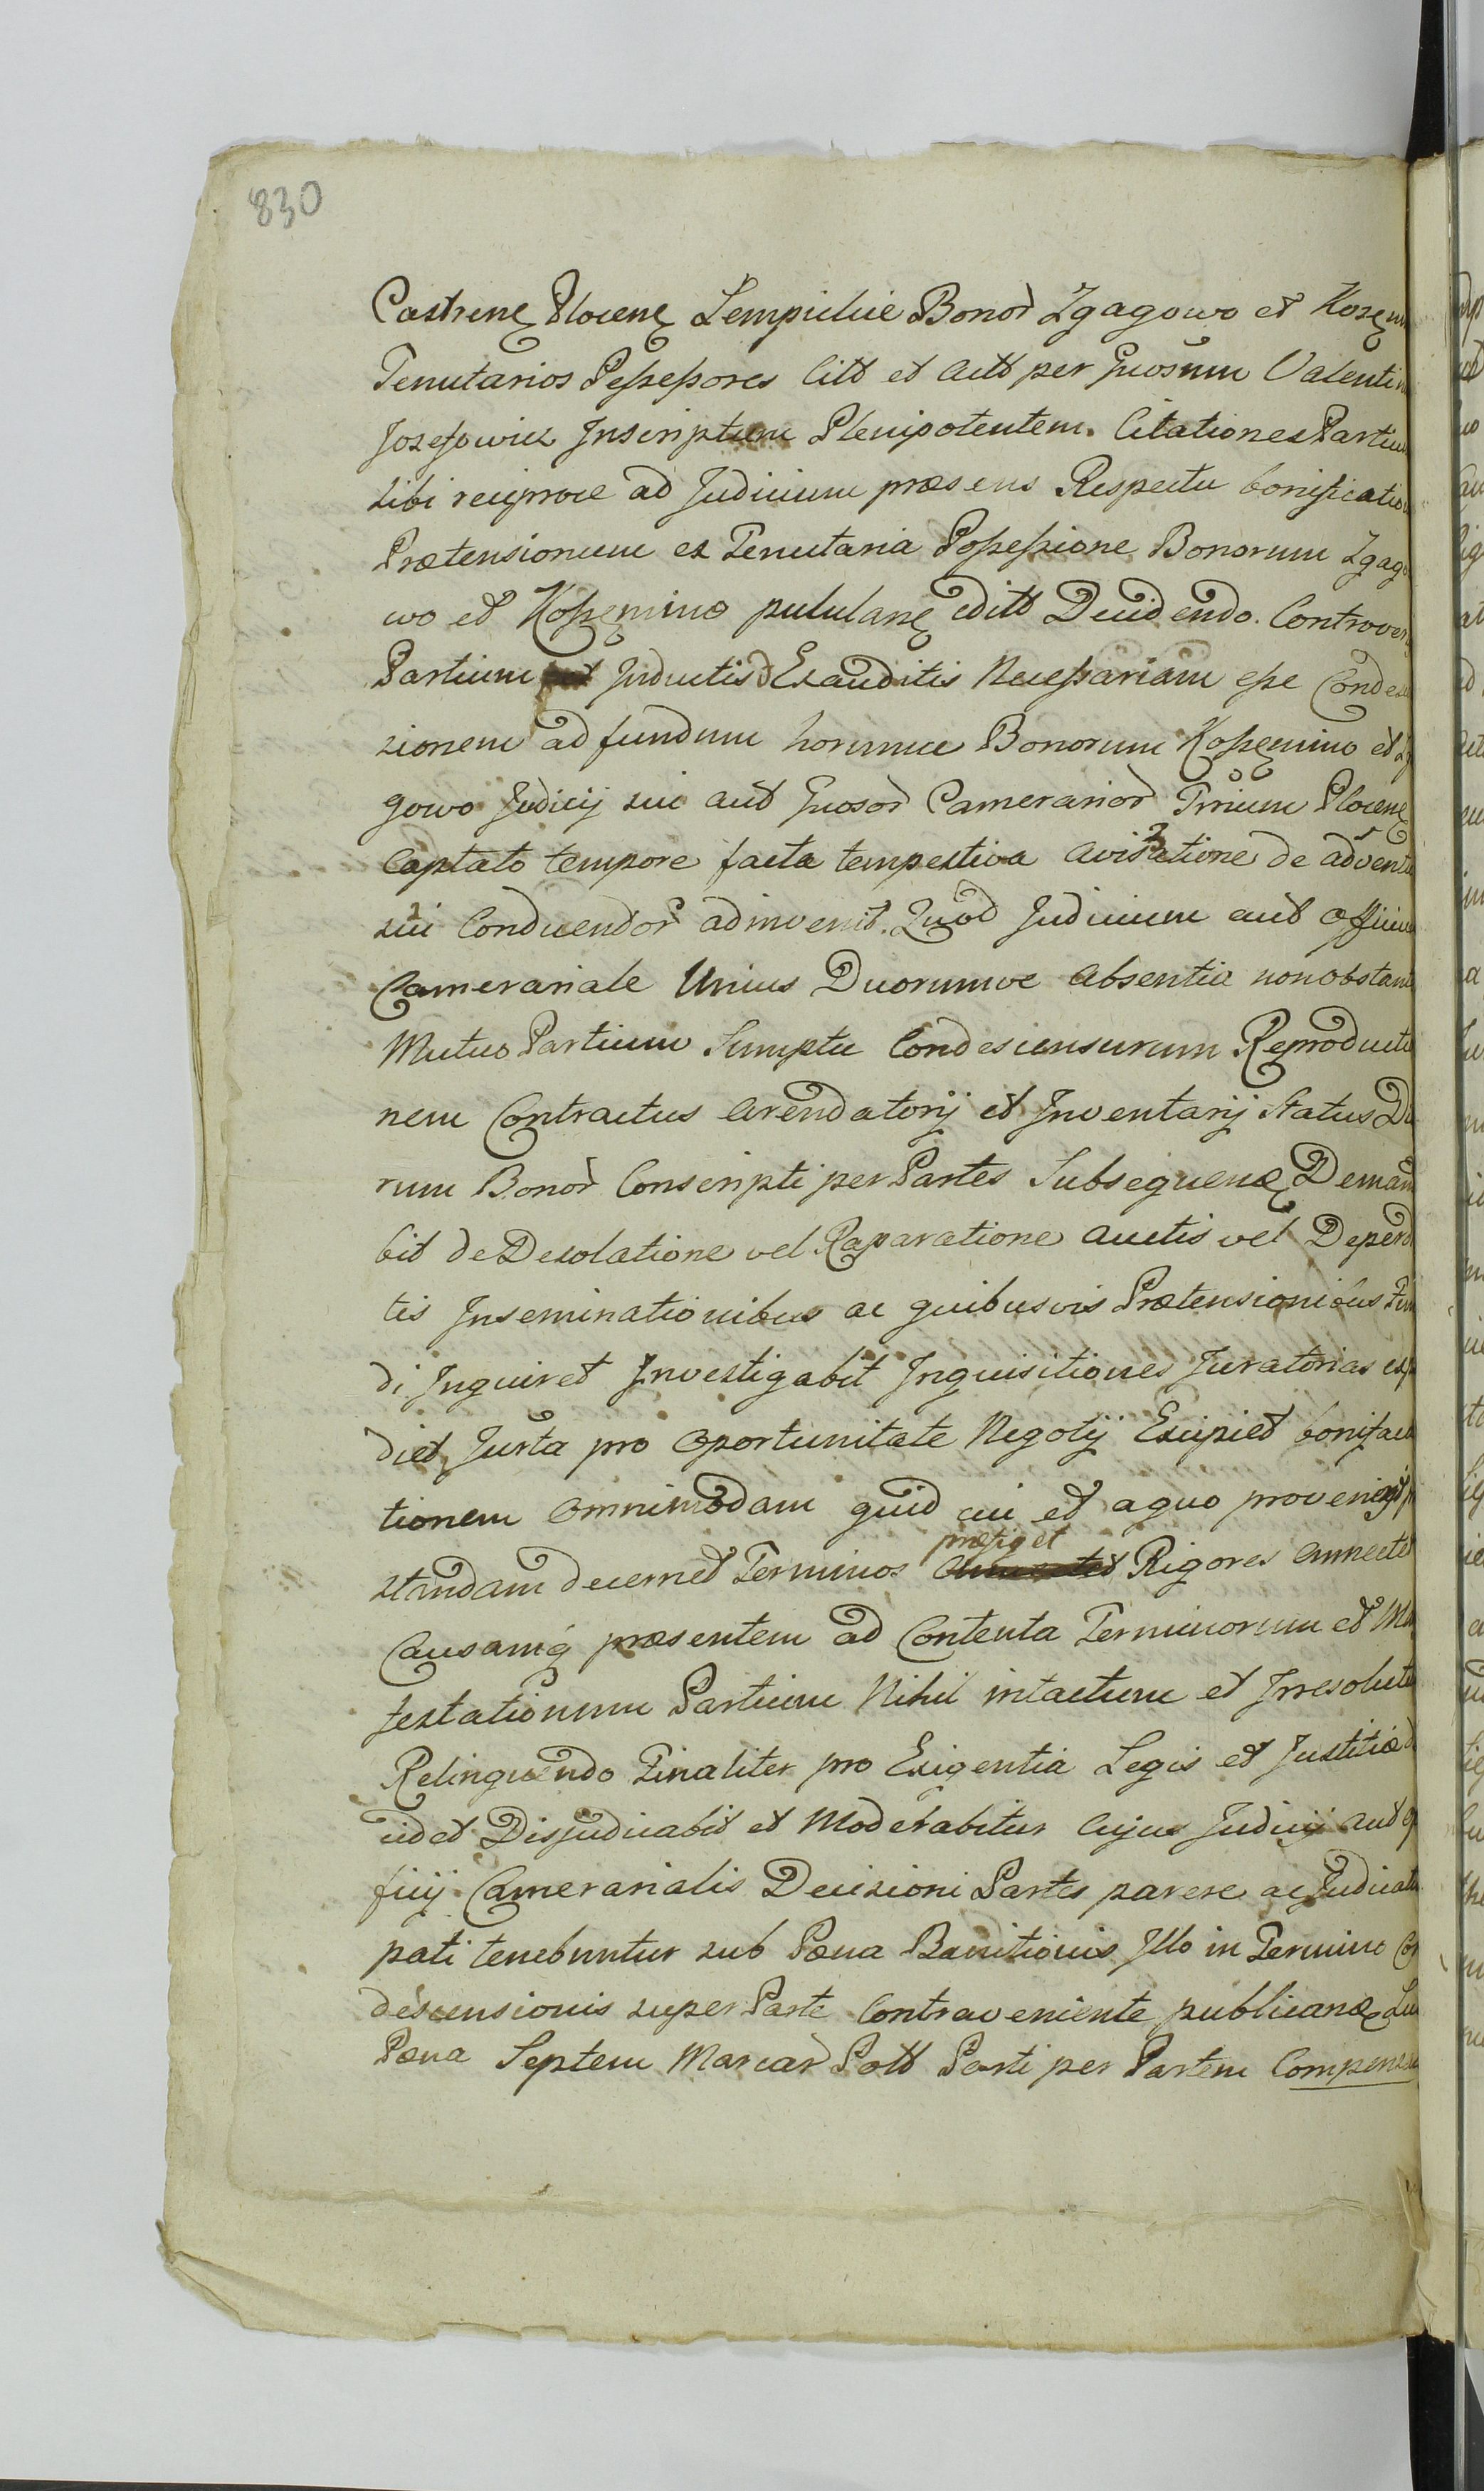 830
Castrens Plocens Lempickie Bonor Zgagowo et Koze
Tenutarios Possessores Citt et Actt per Gnosum Valenti
Jozefowicz Inscriptum Plenipotentem. Citationes Partiu
sibi reciproce ad Judicium præsens Respectu bonificatio
Prætensionum ex Tenutaria Possessione Bonorum Zgago
wo et Kossemino pululans editt Decidendo. Controver
Partium Inductis et Exauditis Necessariam esse Condes
sionem ad fundum horumce Bonorum Kossemino et Zga
gowo Judicij sui aut Gnosor Camerarior Trrium Plocens
Captato tempore facta tempestiva avisatione de adventu
sui Conducendor adinvenit. Quod Judicium aut Officiu
Camerariale Unius Duorumve absentia nonobstant
Mutuo Partium Sumptu Condescensurum Reproductio
nem Contractus Arendatorij et Inventarij Status Du
rum Bonor Conscripti per Partes Subsequens Deman
bit de Desolatione vel Raparatione auctis vel Deperdi
tis Inseminationibus ac quibusvis Prætensionibus Fun
di Inquiret Investigabit Inquisitiones Juratorias exp
diet, Jurta pro Oportunitate Negotij Excipiet bonifica
tionem Omnimodam quid cui et aquo proveniet p
standam decernet Terminos præfiget Rigores annectet
Causamq præsentem ad Contenta Terminorum et Ma
festationum Partium Nihil intactum et Irresolutu
Relinquendo Finaliter pro Exigentia Legis et Justitiæ d
cidet Disjudicabit et Moderabitur Cujus Judicij aut Of
ficij Camerarialis Decisioni Partes parere ac Judicatu
pati tenebuntur sub Pæna Banitionis Illo in Termino Con
descensionis super Parte Contraveniente publicans Lu
Pæna Septem Marcar Pott Parti per Partem Compensa